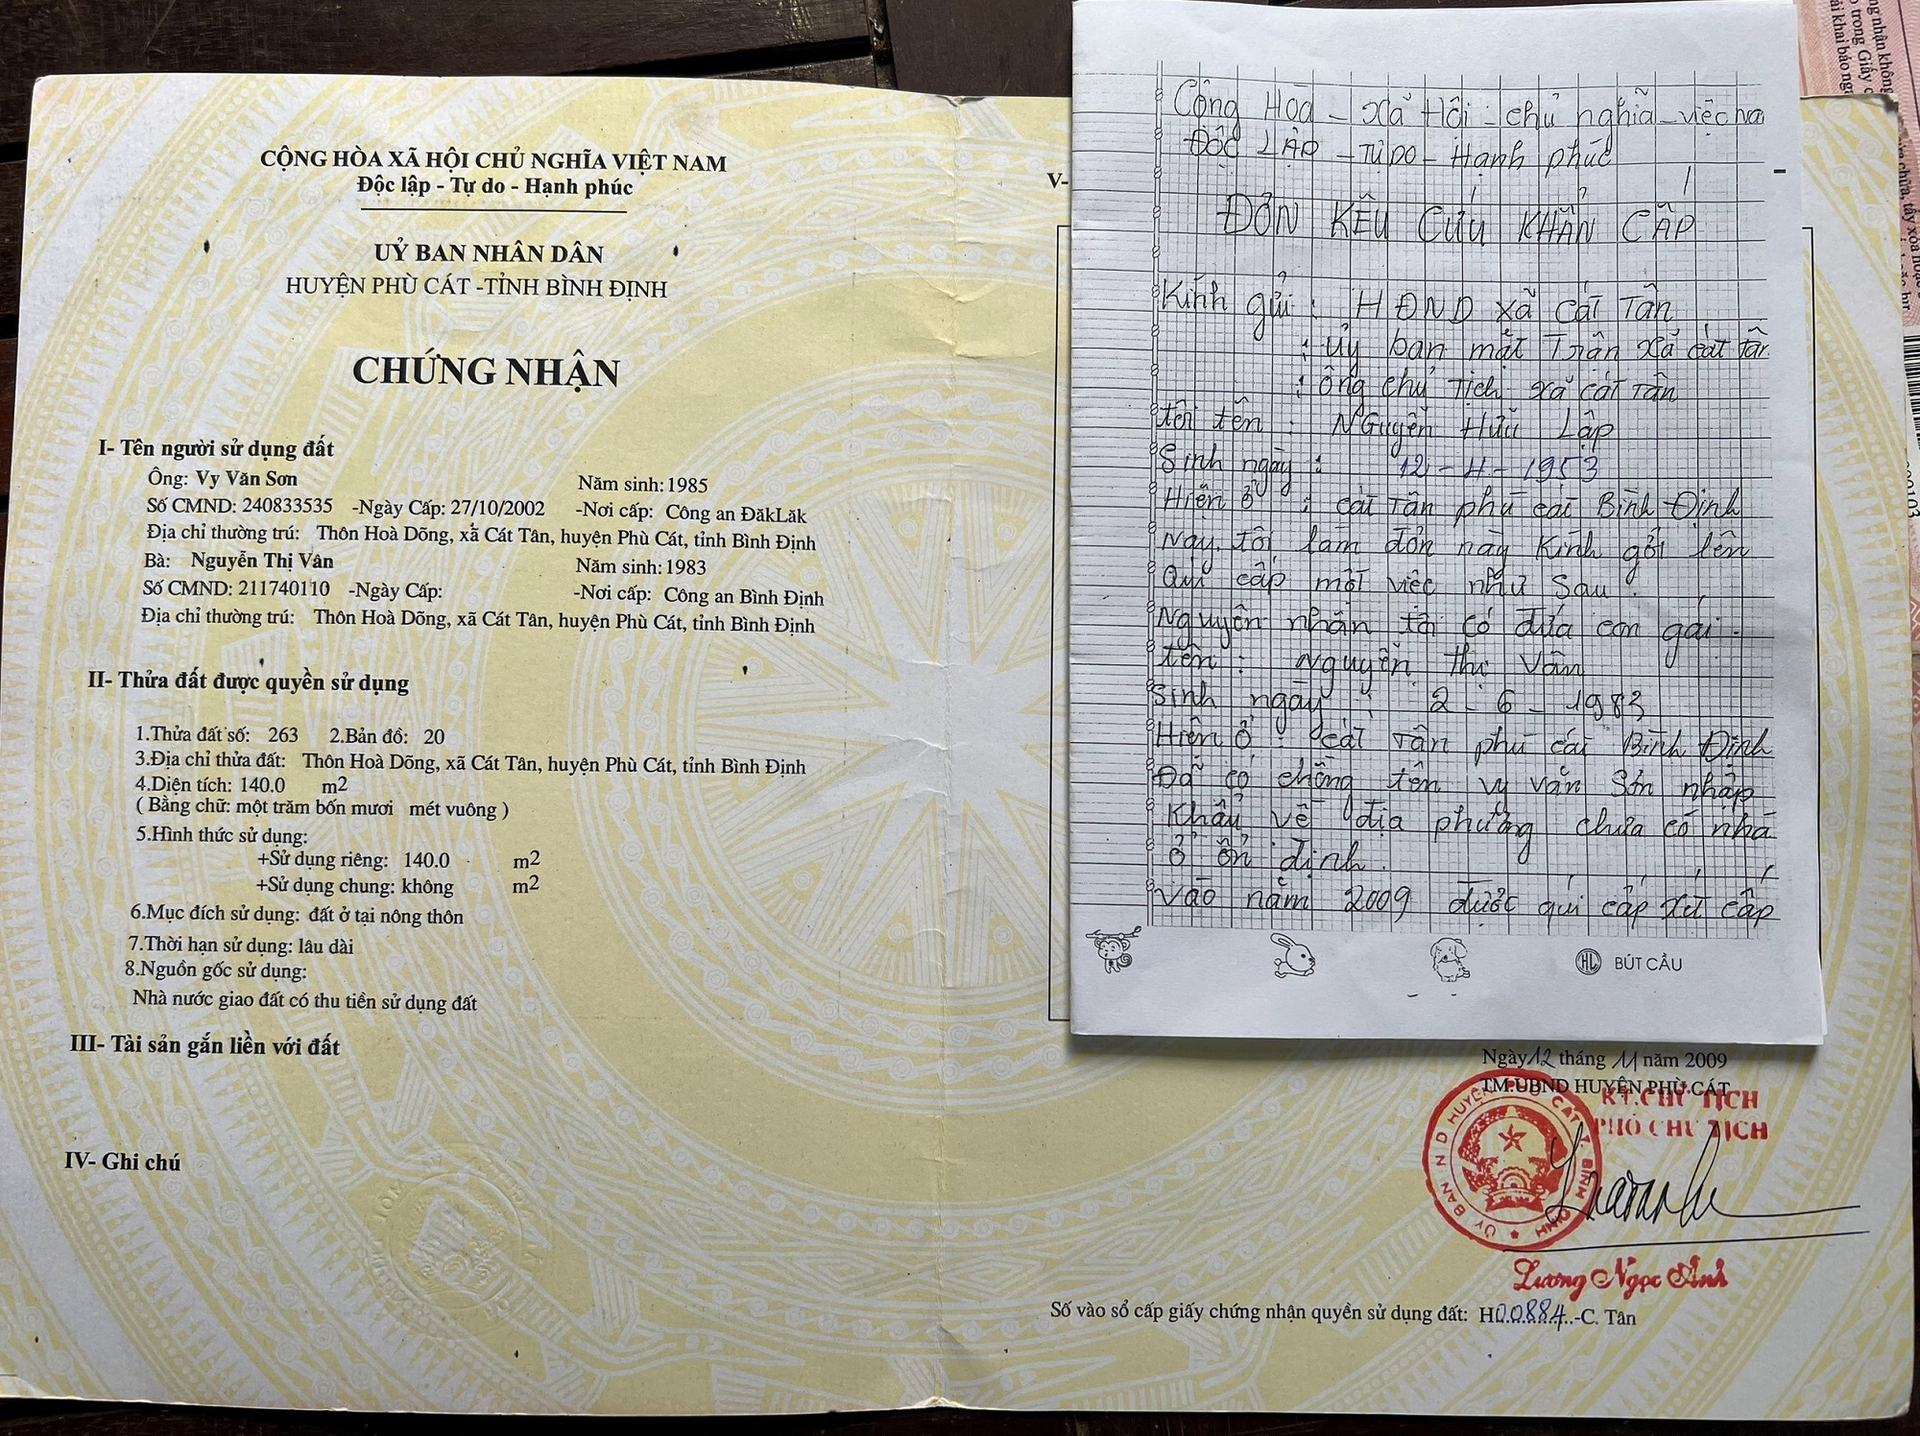 CỘNG HÒA XÃ HỘI CHỦ NGHĨA VIỆT NAM
Độc lập - Tự do - Hạnh phúc
UỶ BAN NHÂN DÂN
HUYỆN PHÙ CÁT -TỈNH BÌNH ĐỊNH
CHỨNG NHẬN
I- Tên người sử dụng đất
Ông: Vy Văn Sơn Năm sinh: 1985
Số CMND: 240833535 -Ngày Cấp: 27/10/2002 -Nơi cấp: Công an ĐăkLăk
Địa chỉ thường trú: Thôn Hoà Dõng, xã Cát Tân, huyện Phù Cát, tỉnh Bình Định
Bà: Nguyễn Thị Vân Năm sinh: 1983
Số CMND: 211740110 -Ngày Cấp: -Nơi cấp: Công an Bình Định
Địa chỉ thường trú: Thôn Hoà Dõng, xã Cát Tân, huyện Phù Cát, tỉnh Bình Định
II- Thửa đất được quyền sử dụng
1.Thửa đất số: 263 2.Bản đồ: 20
3.Địa chỉ thửa đất: Thôn Hoà Dõng, xã Cát Tân, huyện Phù Cát, tỉnh Bình Định
4.Diện tích: 140.0 m2
( Bằng chữ: một trăm bốn mươi mét vuông )
5.Hình thức sử dụng:
+Sử dụng riêng: 140.0 m2
+Sử dụng chung: không m2
6.Mục đích sử dụng: đất ở tại nông thôn
7.Thời hạn sử dụng: lâu dài
8.Nguồn gốc sử dụng:
Nhà nước giao đất có thu tiền sử dụng đất
III- Tài sản gắn liền với đất
IV- Ghi chú
V-
Cộng Hoà - Xã Hội - chủ nghĩa - việt na
Độc LẬP - Tự DO - Hạnh phúc
ĐƠN KÊU CỨU KHẨN CẤP
Kính gửi : HĐND xã Cát Tân
: Ủy ban mặt Trận xã cát tân
: ông chủ Tịch xã cát Tân
tôi tên : NGuyễn Hữu Lập
Sinh ngày : 12 - 4 - 1953
Hiện ở : cát Tân phù cát Bình Định
Nay tôi làm đơn này Kính gởi lên
Quí cấp một việc như sau :
Nguyên nhân tôi có đứa con gái.
tên : Nguyễn thị vân
Sinh ngày : 2 - 6 - 1983
Hiện ở : cát Tân phù cát Bình Định
Đã có chồng tên vy văn sơn nhập
Khẩu về địa phương chưa có nhà
ở ổn định.
Vào năm 2009 được quí cấp xét cấp
BÚT CẦU
Ngày 12 tháng 11 năm 2009
TM.UBND HUYỆN PHÙ CÁT
KT.CHỦ TỊCH
PHÓ CHỦ TỊCH
ỦY BAN N D HUYỆN PHÙ CÁT T. BÌNH ĐỊNH
Lương Ngọc Anh
Số vào sổ cấp giấy chứng nhận quyền sử dụng đất: H00884.-C. Tân